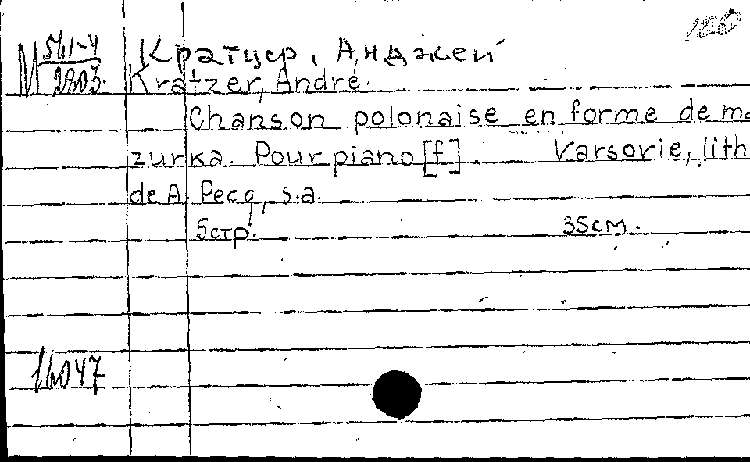 М 561-4 Кратцер, Анджей 120
2803. Kratzer, André.
Chanson polonaise en forme de ma
zurka. Pour piano [f]. Varsovie, lith
de A. Pecq, s.a.
5стр. 35см.
16047